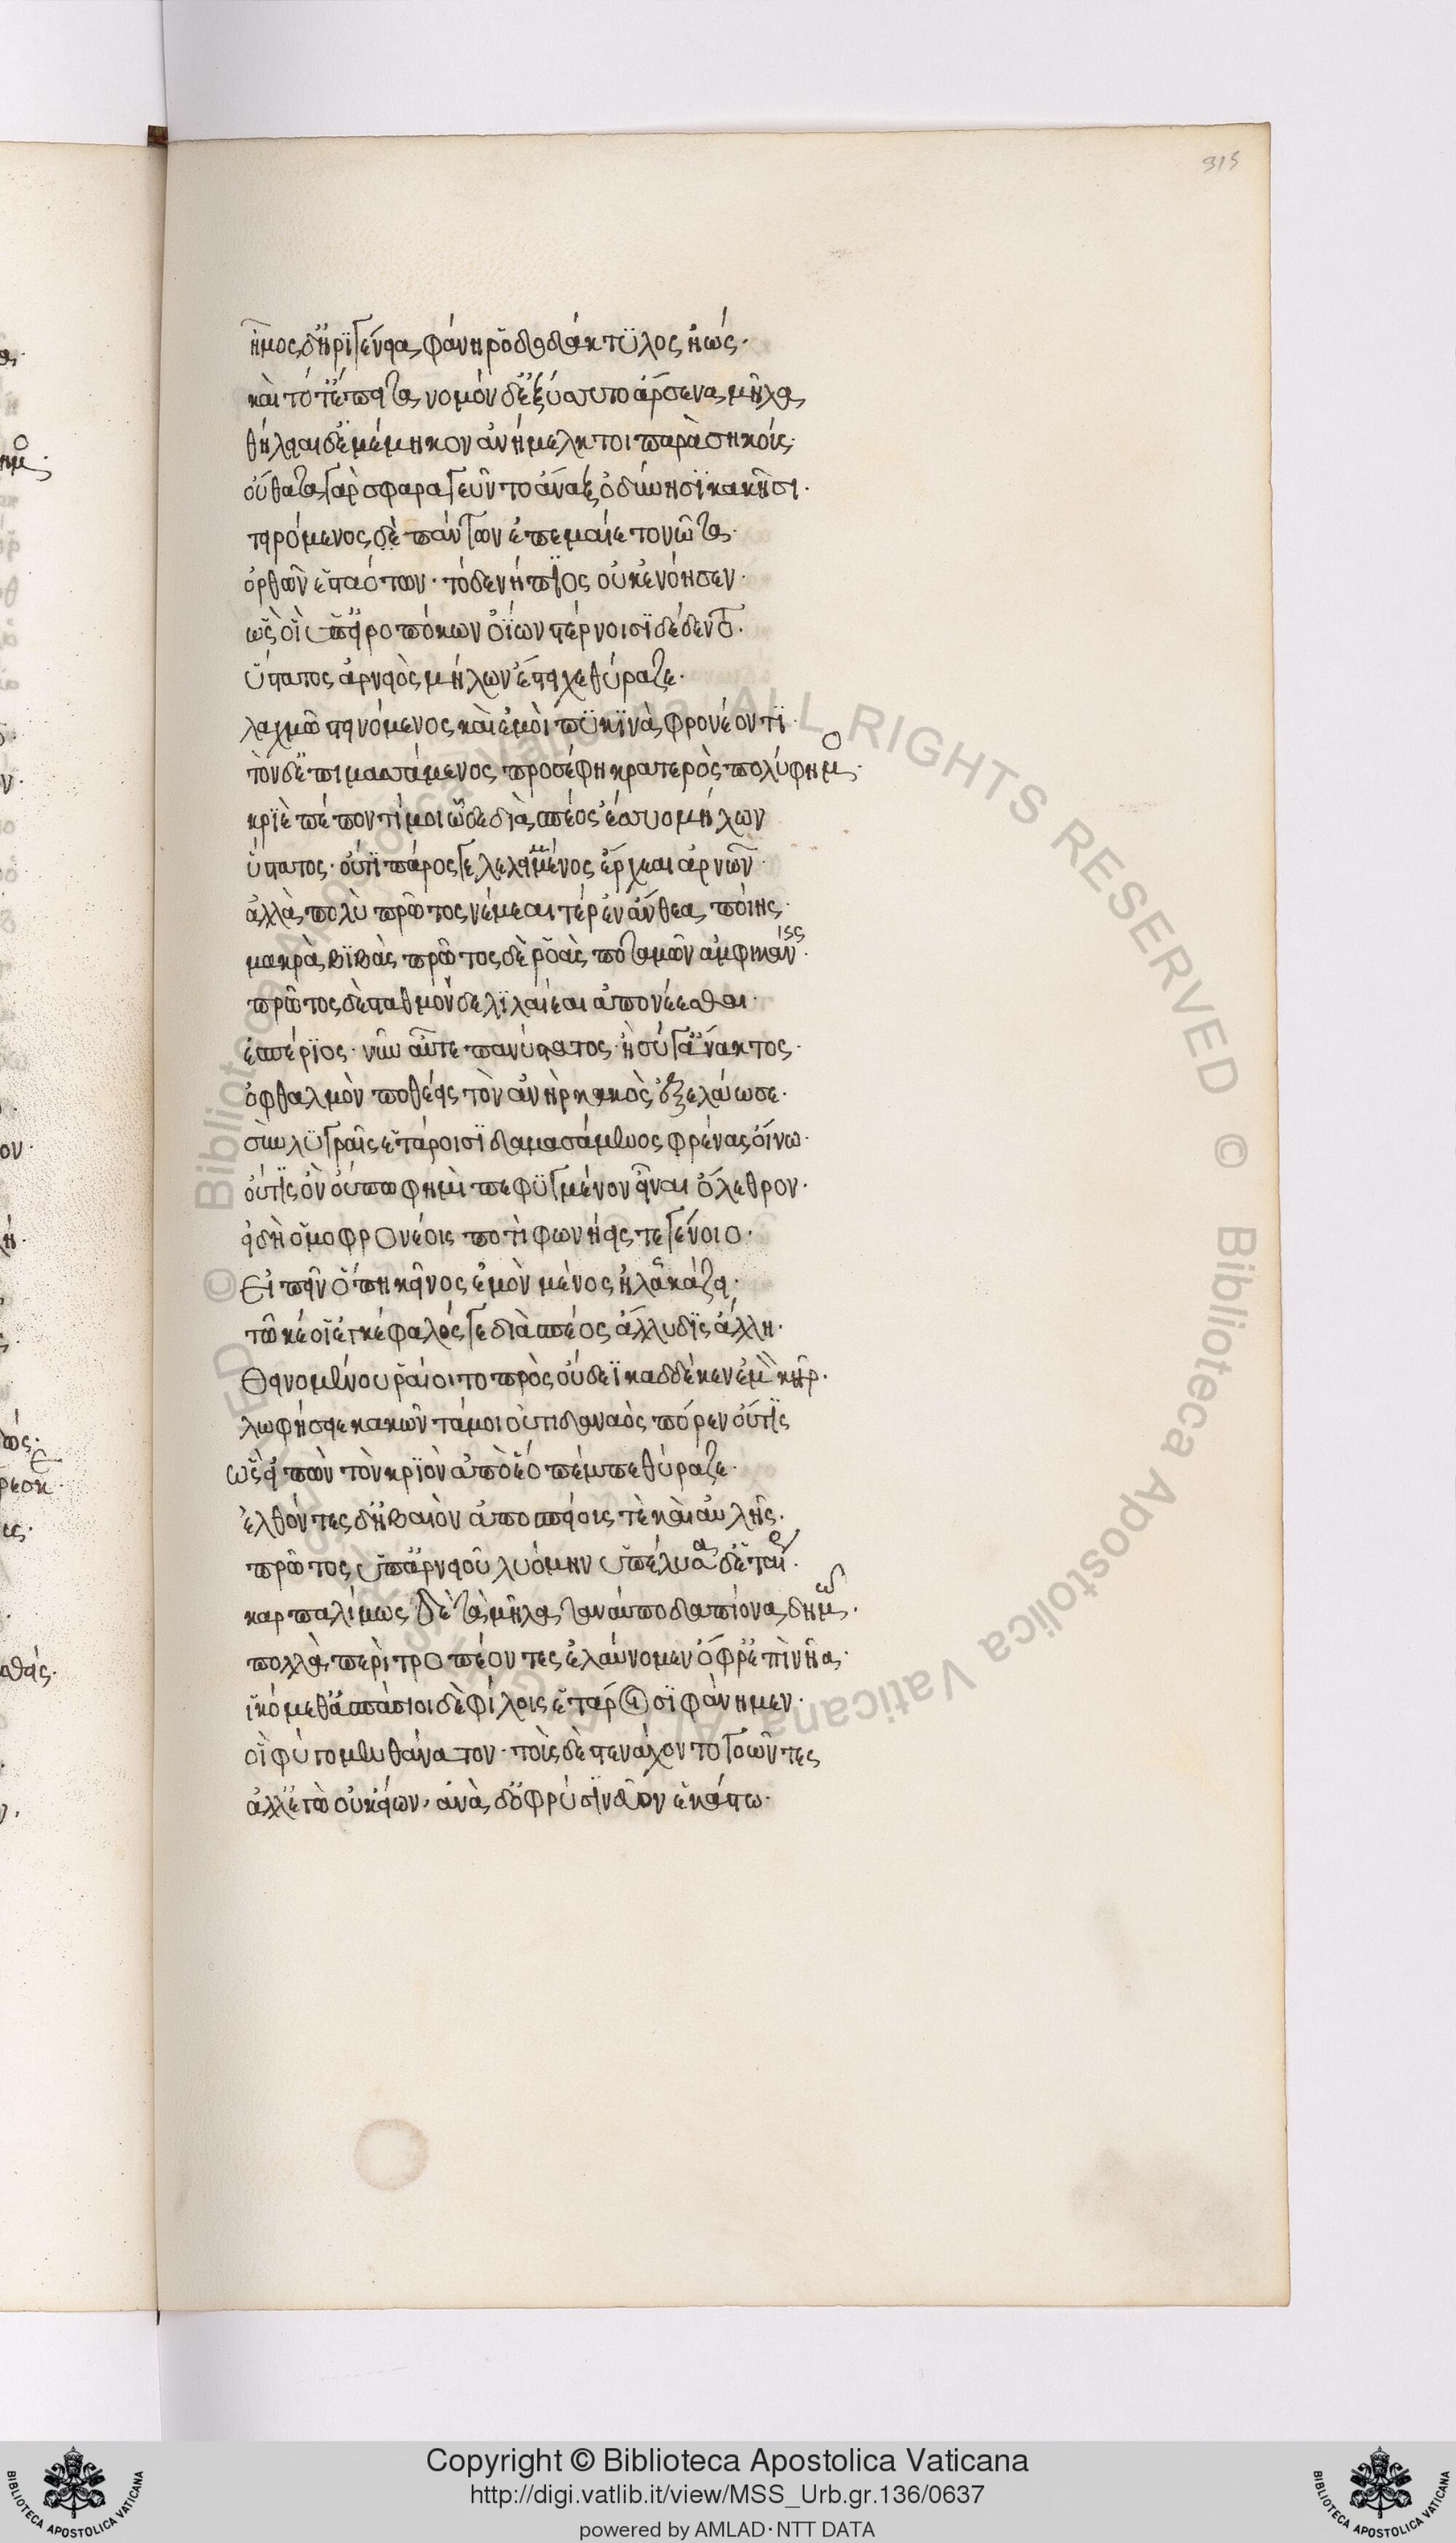 315
ἦμος δ' ἠριγένεια φάνη ῥοδοδάκτυλος ἠώς·
καὶ τότ' ἔπειτα νομὸν δ' ἐξέσσυτο ἄρσενα μῆλα
θήλειαι δ' ἐμέμηκον ἀνήμελκτοι παρὰ σηκοίς·
οὔθατα γὰρ σφαραγεῦντο ἄναξ ὀδύνησι κακῆσι·
τειρόμενος δὲ πάντων ἐπεμαίετο νῶτα·
ὀρθῶν ἑσταότων· τόδε νήπιος οὐκ ἐνόησεν·
ὥς οἱ ὑπ' εἰροπόκων ὀΐων στέρνοισι δέδεντο·
ὕστατος ἀρνειὸς μήλων ἔστειχε θύραζε·
λαχμῶ στεινόμενος καὶ ἐμοὶ πυκινὰ φρονέοντι·
τὸν δ' ἐπιμασσάμενος προσέφη κρατερὸς πολύφημος·
κριὲ πέπον τί μοι ὧδε διὰ σπέος ἔσσυο μήλων
ὕστατος· οὔτι πάρος γε λελειμμένος ἔρχεαι ἀρνῶν·
ἀλλὰ πολὺ πρῶτος νέμεαι τέρεν ἄνθεα ποίης·
μακρὰ βιβὰς πρῶτος δὲ ῥοὰς ποταμῶν ἀμφικάνεις·
πρῶτος δὲ σταθμόνδε λιλαίεαι ἀπονέεσθαι·
ἑσπέριος· νῦν αὖτε πανύστατος· ἢ σύ γ' ἄνακτος·
ὀφθαλμὸν ποθέεις τὸν ἀνὴρ κακὸς ἐξελάωσε·
σὺν λυγραῖς ἑτάροισι δαμασάμενος φρένας οἴνω·
οὔτις ὃν οὔπω φημὶ πεφυγμένον εἶναι ὄλεθρον·
εἰ δὴ ὁμοφρονέοις ποτὶ φωνήεις τε γένοιο·
Εἰπεῖν ὅπη κεῖνος ἐμὸν μένος ἠλακάζει·
τῶ κέ οἱ ἐγκέφαλός γε διὰ σπέος ἄλλυδις ἄλλη·
Θεινομένου ῥαίοιτο πρὸς οὔδεϊ καδδέ κεν ἐμὸν κῆρ·
λωφήσειε κακῶν τά μοι οὐτιδανὸς πόρεν οὔτις
ὣς εἰπὼν τὸν κριὸν ἀπὸ ἕο πέμπε θύραζε·
ἐλθόντες δ' ἠβαιὸν ἀπὸ σπείους τε καὶ αὐλῆς·
πρῶτος ὑπ' ἀρνειοῦ λυόμην ὑπέλυσα δ' ἑταίρους·
καρπαλίμως δὲ τὰ μῆλα ταναύποδα πίονα δημῶ·
πολλὰ περιτροπέοντες ἐλαύνομεν ὄφρ' ἐπὶ νῆα·
ἱκόμεθ' ἀσπάσιοι δὲ φίλοις ἑτάροισι φάνημεν·
οἳ φύγομεν θάνατον· τοὺς δὲ στενάχοντο γοῶντες
ἀλλ' ἐγὼ οὐκ εἴων· ἀνὰ δ' ὀφρύσι νεῦον ἑκάστω·
Copyright © Biblioteca Apostolica Vaticana
http://digi.vatlib.it/view/MSS_Urb.gr.136/0637
powered by AMLAD·NTT DATA